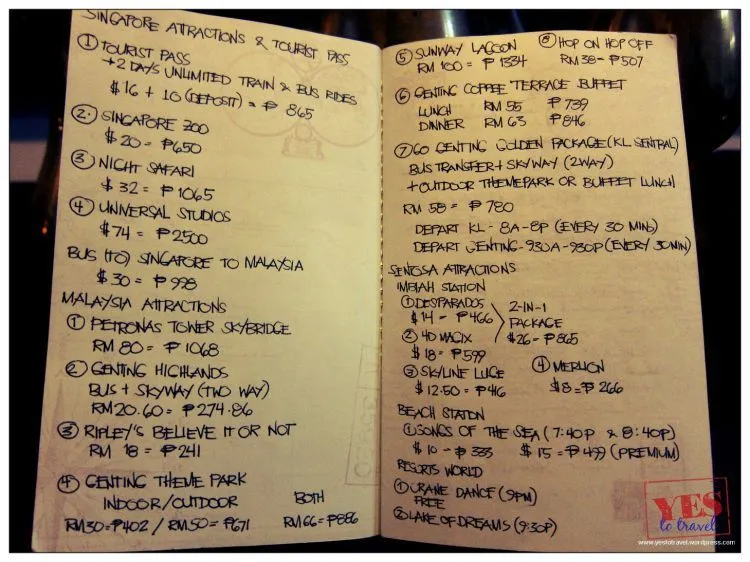 SINGAPORE ATTRACTIONS & TOURIST PASS
① TOURIST PASS
→2 DAYS UNLIMITED TRAIN & BUS RIDES
$16 + 10 (DEPOSIT) = ₱ 865
②. SINGAPORE ZOO
$20 = ₱650
③ NIGHT SAFARI
$32 = ₱1065
④ UNIVERSAL STUDIOS
$74 = ₱2500
BUS (TO) SINGAPORE TO MALAYSIA
$30 = ₱998
MALAYSIA ATTRACTIONS
① PETRONAS TOWER SKYBRIDGE
RM 80 = ₱1068
② GENTING HIGHLANDS
BUS + SKYWAY (TWO WAY)
RM20.60 = ₱274.86
③ RIPLEY'S BELIEVE IT OR NOT
RM 18 = ₱241
④ GENTING THEME PARK
INDOOR/OUTDOOR BOTH
RM30=₱402 / RM50=₱671 RM66=₱886
⑤ SUNWAY LAGOON
RM 100 = ₱1334
⑧ HOP ON HOP OFF
RM38 - ₱507
⑥ GENTING COFFEE TERRACE BUFFET
LUNCH RM 55 ₱739
DINNER RM 63 ₱846
⑦ GO GENTING GOLDEN PACKAGE (KL SENTRAL)
BUS TRANSFER + SKYWAY (2WAY)
+ OUTDOOR THEMEPARK OR BUFFET LUNCH
RM 58 = ₱780
DEPART KL - 8A-8P (EVERY 30 MINS)
DEPART GENTING - 930A-930P (EVERY 30MIN)
SENTOSA ATTRACTIONS
IMBIAH STATION
① DESPARADOS
$14 - ₱466
② 4D MAGIX
$18 = ₱599
2-IN-1
PACKAGE
$26 = ₱865
③ SKYLINE LUGE
$12.50 = ₱416
④ MERLION
$8 = ₱266
BEACH STATION
① SONGS OF THE SEA (7:40P & 8:40P)
$10 - ₱333 $15 = ₱499 (PREMIUM)
RESORTS WORLD
① CRANE DANCE (9PM)
FREE
② LAKE OF DREAMS (9:30P)
YES
to travel
www.yestotravel.wordpress.com